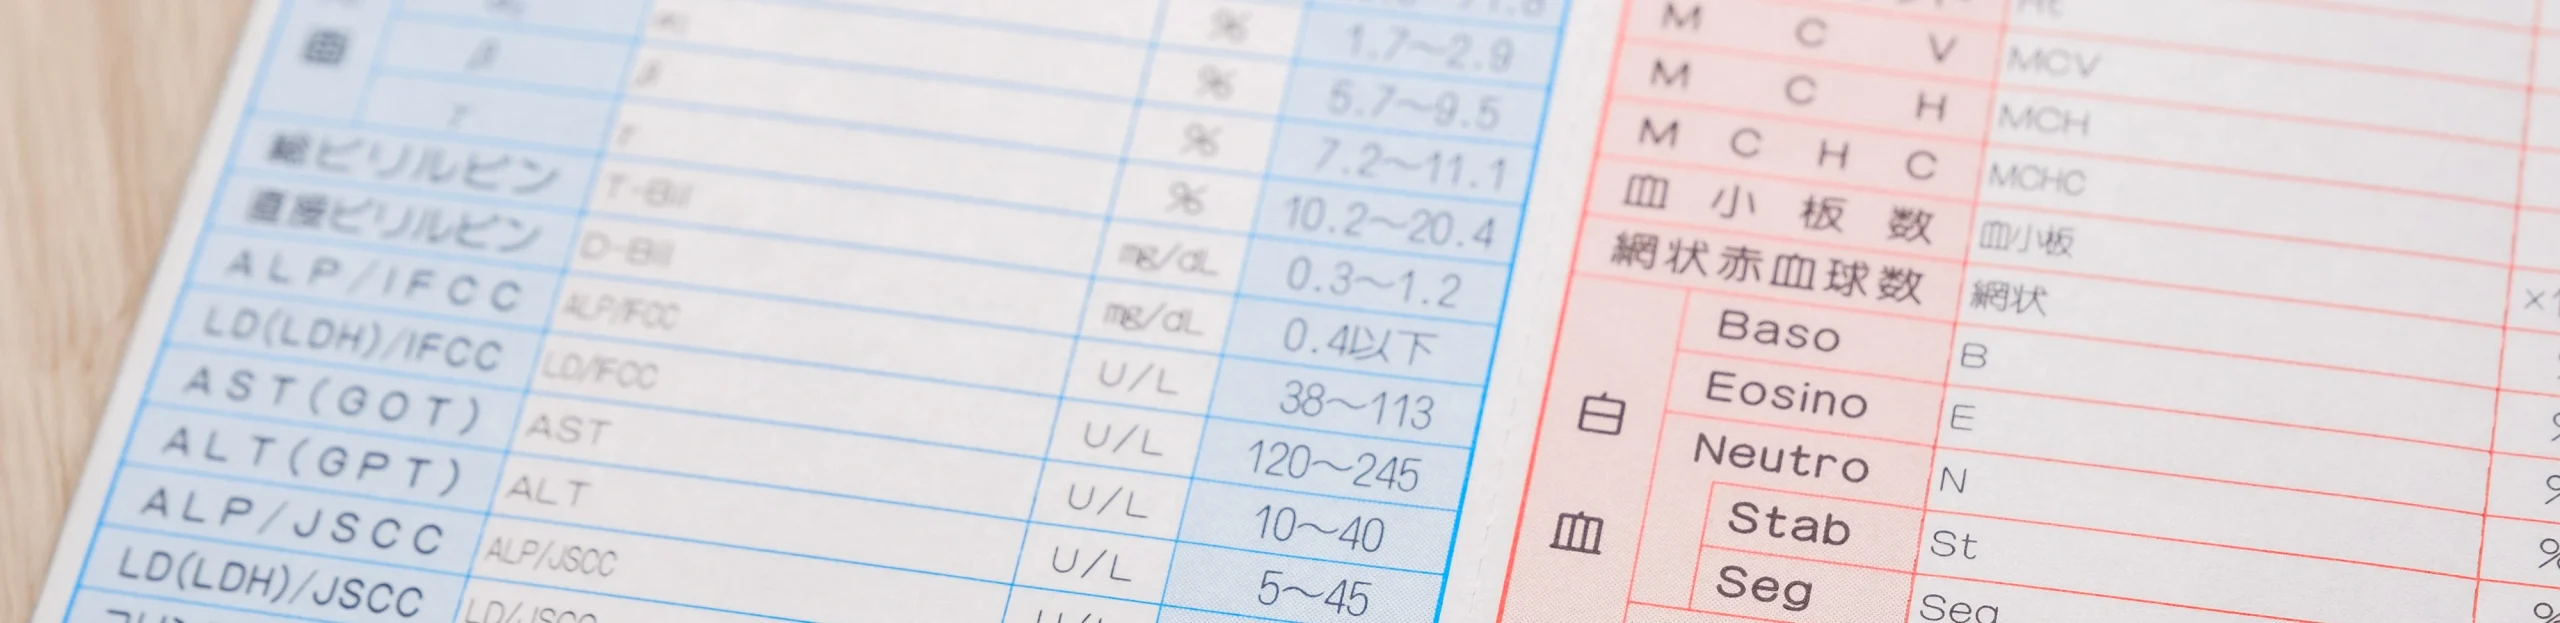 % 1.7～2.9
% 5.7～9.5
β β % 7.2～11.1
γ γ % 10.2～20.4
総ビリルビン T-Bil mg/dL 0.3～1.2
直接ビリルビン D-Bil mg/dL 0.4以下
ALP/IFCC ALP/IFCC U/L 38～113
LD(LDH)/IFCC LD/IFCC U/L 120～245
AST(GOT) AST U/L 10～40
ALT(GPT) ALT U/L 5～45
ALP/JSCC ALP/JSCC
LD(LDH)/JSCC LD/JSCC
MCV MCV
MCH MCH
MCHC MCHC
血小板数 血小板
網状赤血球数 網状
白血
Baso B
Eosino E
Neutro N
Stab St
Seg Seg